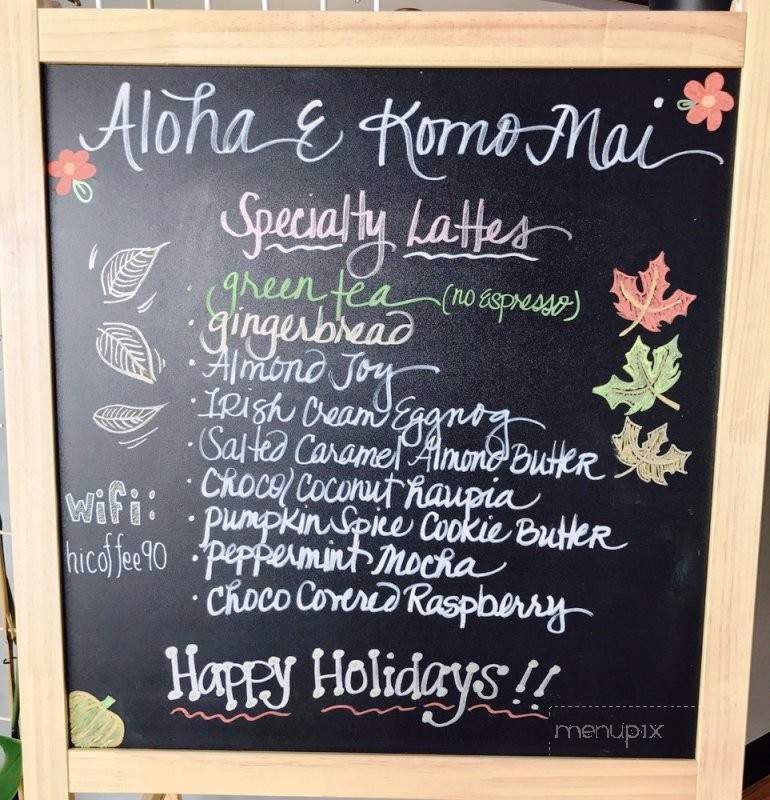 Aloha & Komo Mai
Specialty Lattes
• green tea (no espresso)
• gingerbread
• Almond Joy
• Irish Cream Eggnog
• Salted Caramel Almond Butter
• Choco/Coconut haupia
• pumpkin Spice Cookie Butter
• peppermint Mocha
• Choco Covered Raspberry
wifi:
hicoffee90
Happy Holidays!!
menupix